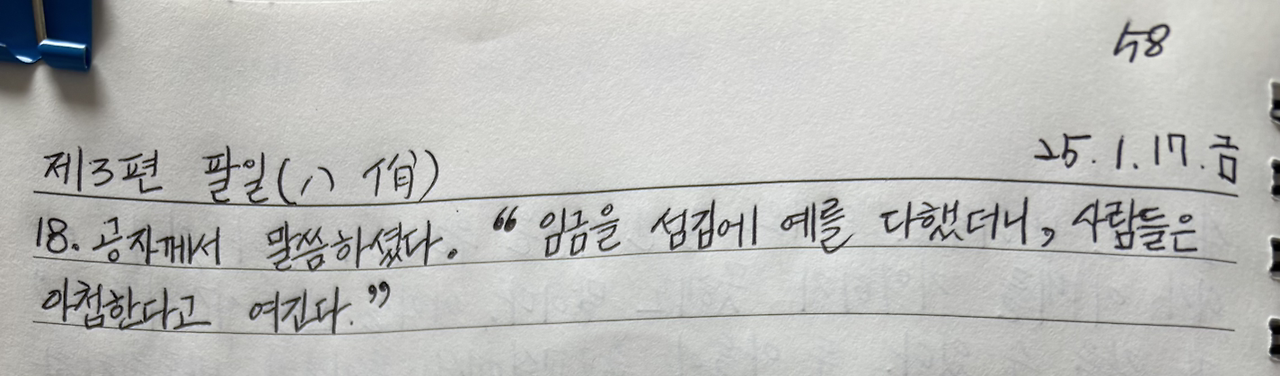 58
25.1.17.금
제3편 팔일(八 佾)
18. 공자께서 말씀하셨다. “임금을 섬김에 예를 다했더니, 사람들은
아첨한다고 여긴다.”